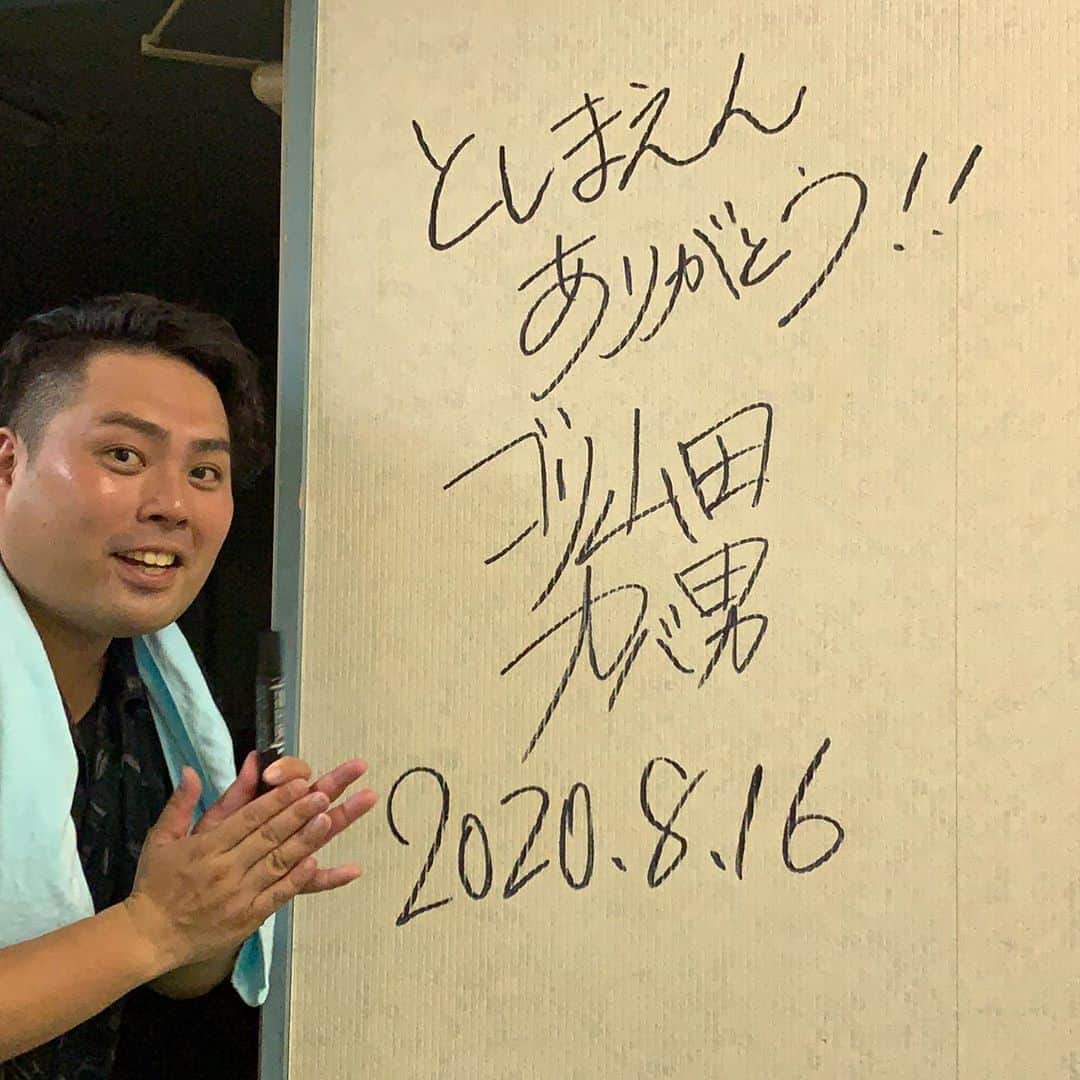 としまえん
ありがとう!!
ゴリ山田
カバ男
2020.8.16